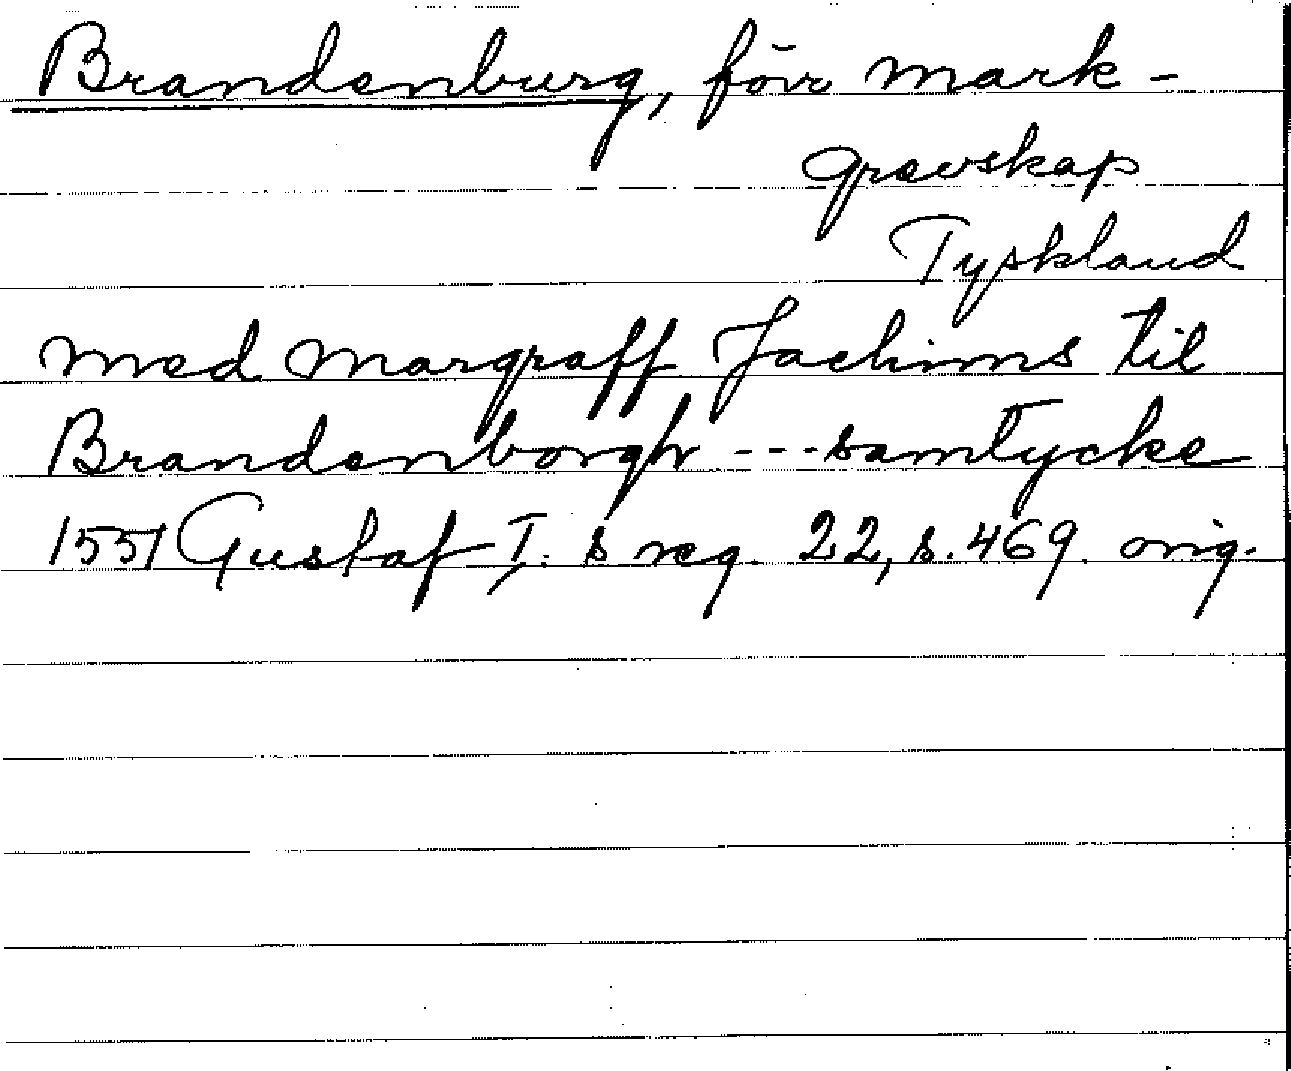 Brandenburg, förr mark-
grevskap
Tyskland
med Margraff Jachims til
Brandenborgh --- samtycke
1551 Gustaf I. s reg. 22, s. 469. orig.